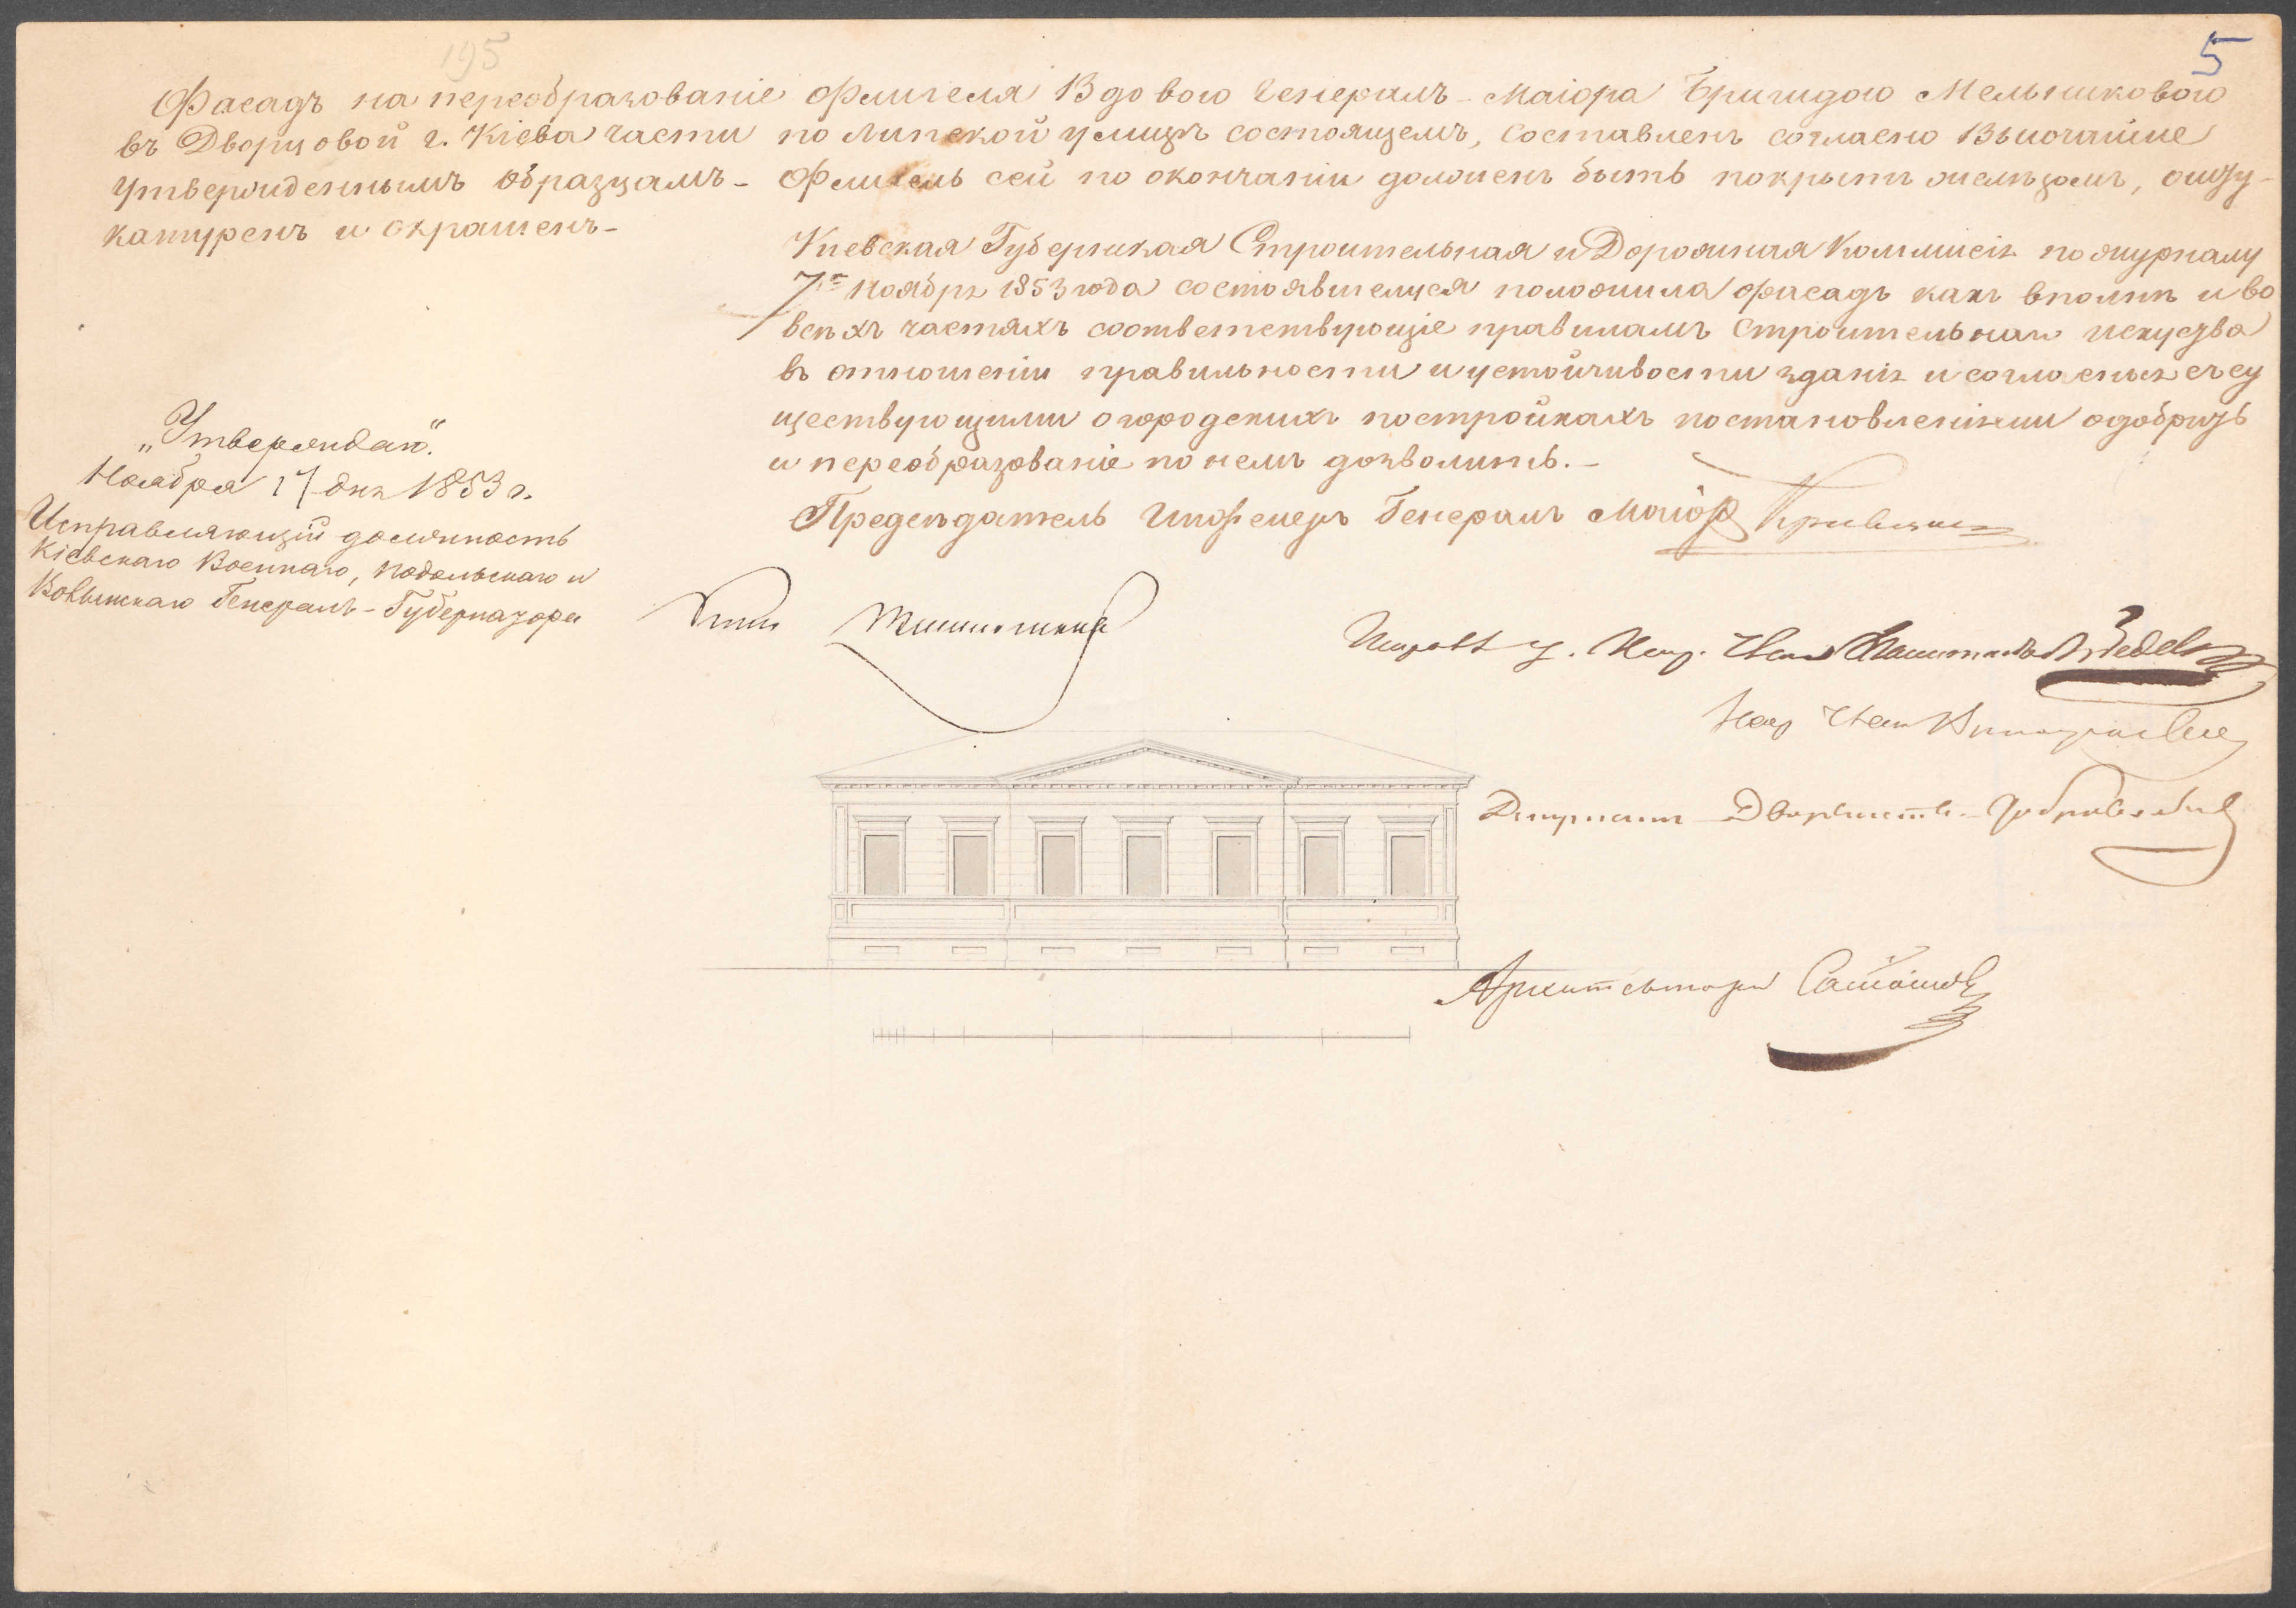 195
5
Фасадъ на переобразованіе Флигеля Вдовою Генералъ-Маіора Бригидою Мельниковою
въ Дворцовой г. Кіева части по Липской улицѣ состоящемъ, составленъ согласно Высочайше
утвержденнымъ образцамъ- Флигель сей по окончаніи долженъ быть покрытъ желѣзомъ, ошту-
катуренъ и окрашенъ-
Кіевская Губернская Строительная и Дорожная Коммисія по журналу
7го Ноября 1853 года состоявшемуся положила фасадъ какъ вполнѣ и во
всѣхъ частяхъ соответствующіе правиламъ строительнаго искуства
въ отношеніи правильности и устойчивости зданія и согласныя съ су
ществующими о городскихъ постройкахъ постановленіями одобрить
и переобразованіе по немъ дозволить.-
Предсѣдатель Инженеръ Генералъ Маіоръ
„Утверждаю".
Ноября 17 дня 1853 г.
Исправляющій должность
Кіевскаго Военнаго, Подольскаго и
Волынскаго Генералъ-Губернатора
Депутатъ Дворянства
Архитекторъ